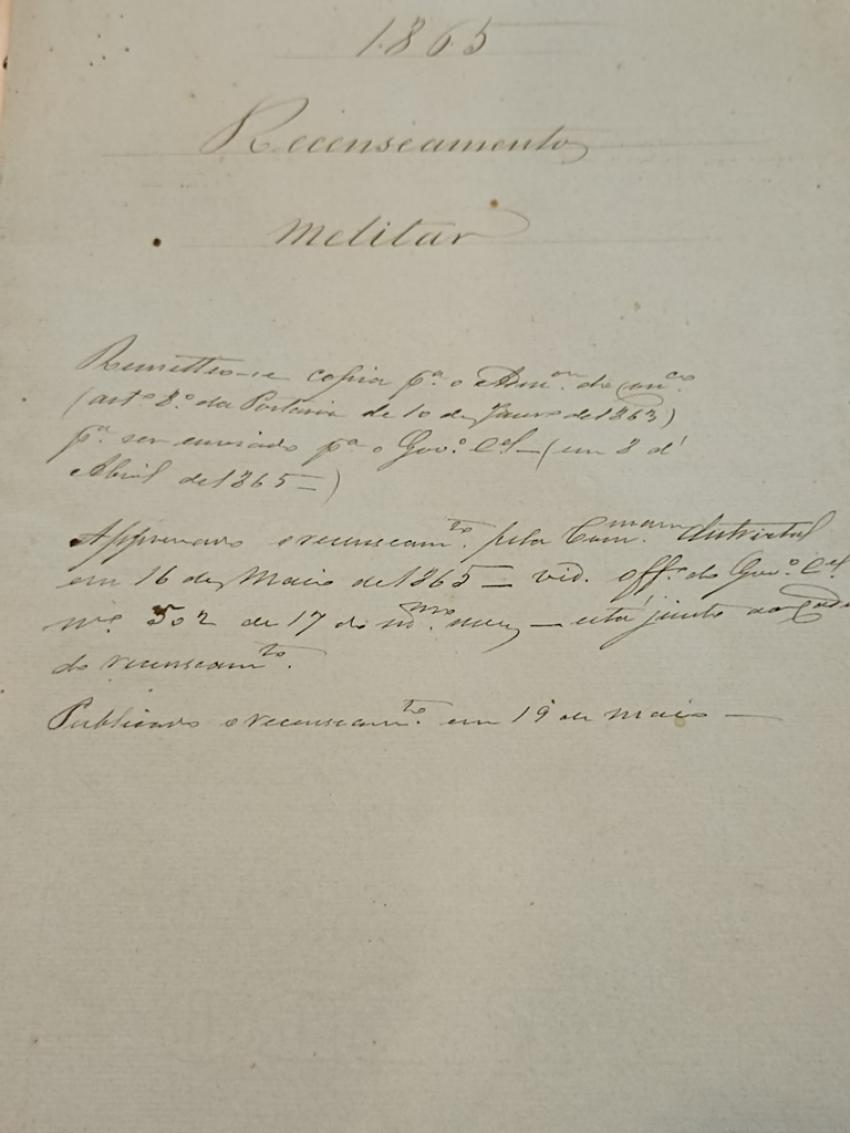 1865
Recenseamento
Melitar
Remetteo-se copia p.ª o Adm.or do con.co
(art.º 8.º da Portaria de 10 de Janr.o de 1863)
p.ª ser enviado p.ª o Gov.º C.el — (em 8 d'
Abril de 1865 —)
Approvado o recenseam.to pela Com.mam districtal
em 16 de Maio de 1865 — vid. off.º do Gov.º C.el
nº 502 de 17 do m.mo mez — está junto ao
do recenseam.to.
Publicado o recenseam.to em 19 de Maio —